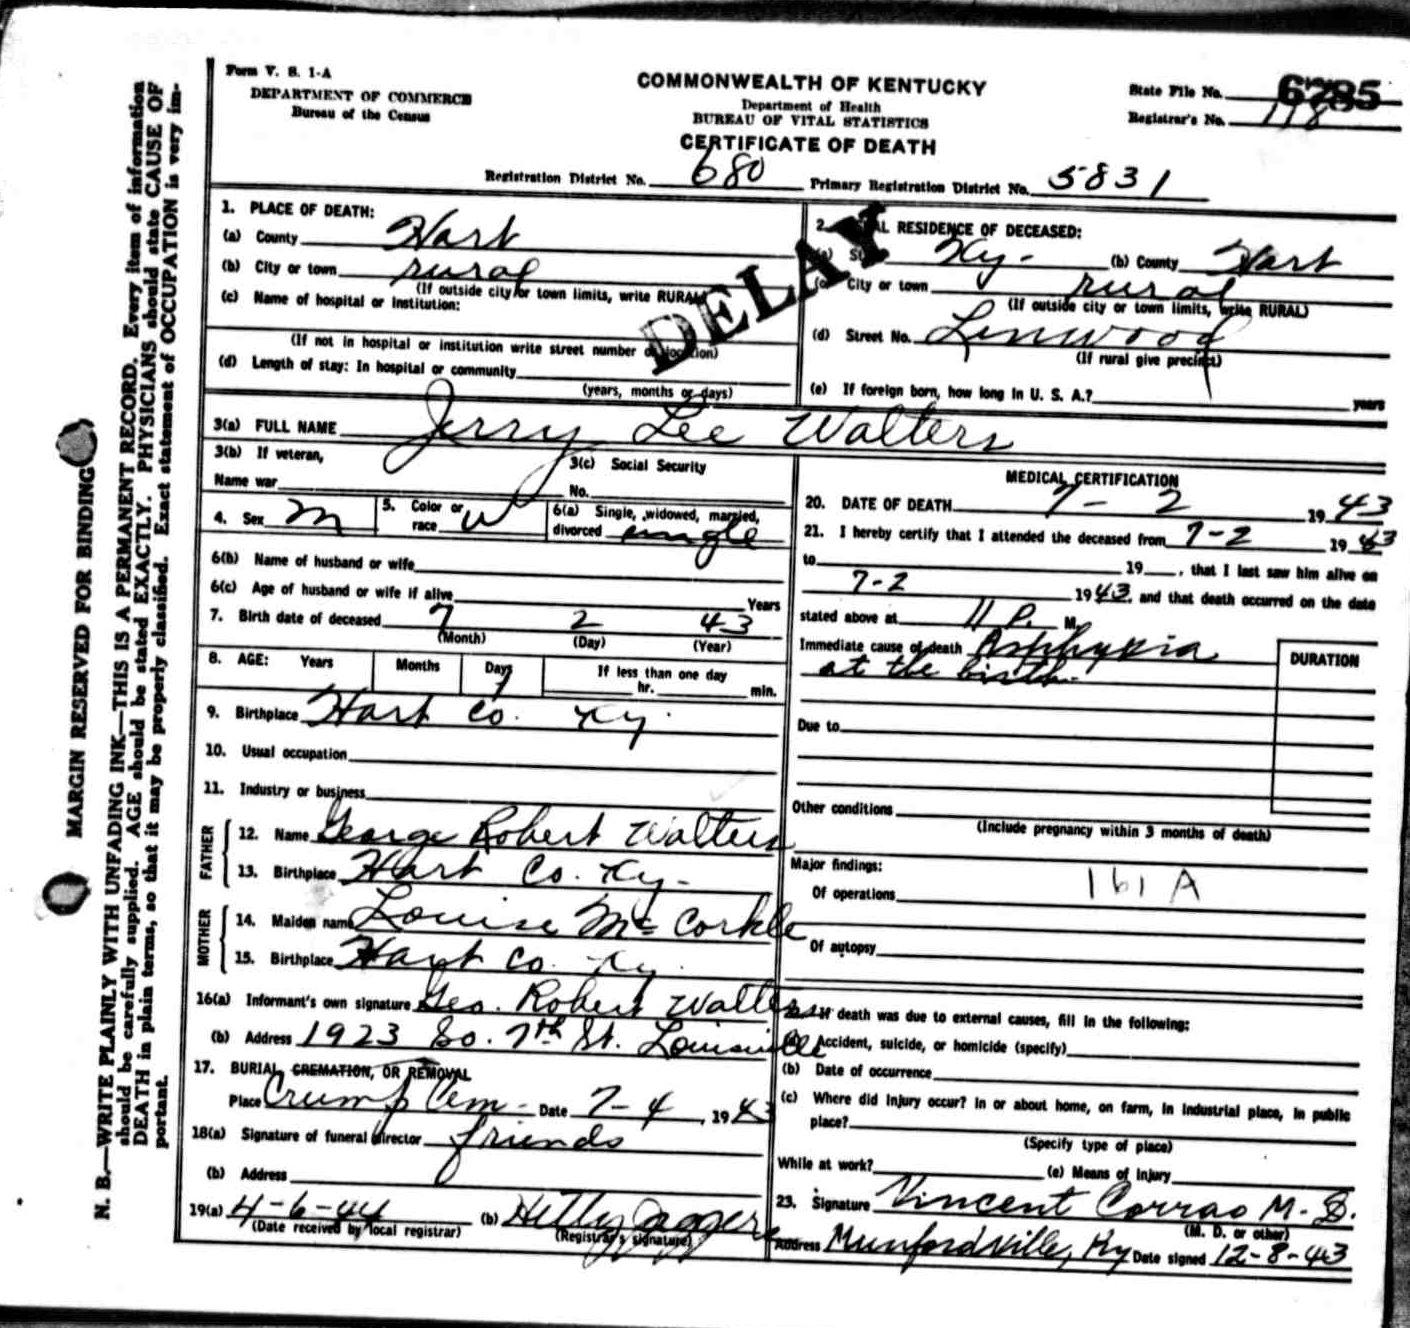 Form V. S. 1-A
DEPARTMENT OF COMMERCE
Bureau of the Census
COMMONWEALTH OF KENTUCKY
Department of Health
BUREAU OF VITAL STATISTICS
CERTIFICATE OF DEATH
State File No. 6785
Registrar's No. 118
Registration District No. 680 Primary Registration District No. 5831
DELAY
1. PLACE OF DEATH:
(a) County Hart
(b) City or town rural
(If outside city or town limits, write RURAL)
(c) Name of hospital or institution:
(If not in hospital or institution write street number or location)
(d) Length of stay: In hospital or community
(years, months or days)
2. RESIDENCE OF DECEASED:
Ky. (b) County Hart
City or town rural
(If outside city or town limits, write RURAL)
(d) Street No. Linwood
(If rural give precinct)
(e) If foreign born, how long in U. S. A.? years
3(a) FULL NAME Jerry Lee Walters
3(b) If veteran,
Name war
3(c) Social Security
No.
4. Sex m
5. Color or
race W
6(a) Single, widowed, married,
divorced single
6(b) Name of husband or wife
6(c) Age of husband or wife if alive Years
7. Birth date of deceased 7 2 43
(Month) (Day) (Year)
8. AGE: Years Months Days If less than one day
1 hr. min.
9. Birthplace Hart Co. Ky.
10. Usual occupation
11. Industry or business
FATHER
12. Name George Robert Walters
13. Birthplace Hart Co. Ky.
MOTHER
14. Maiden name Louise McCorkle
15. Birthplace Hart Co. Ky.
16(a) Informant's own signature Geo. Robert Walters
(b) Address 1923 So. 7th St. Louisville
17. BURIAL, CREMATION, OR REMOVAL
Place Crump Cem. Date 7-4, 1943
18(a) Signature of funeral director friends
(b) Address
19(a) 4-6-44 (b) Hetty Jaggers
(Date received by local registrar) (Registrar's signature)
MEDICAL CERTIFICATION
20. DATE OF DEATH 7- 2 1943
21. I hereby certify that I attended the deceased from 7-2 1943
to 19 , that I last saw him alive on
7-2 1943, and that death occurred on the date
stated above at 11 P. M.
Immediate cause of death Asphyxia
at the birth.
DURATION
Due to
Other conditions
(Include pregnancy within 3 months of death)
Major findings:
Of operations 161 A
Of autopsy
If death was due to external causes, fill in the following:
Accident, suicide, or homicide (specify)
(b) Date of occurrence
(c) Where did injury occur? In or about home, on farm, in industrial place, in public
place?
(Specify type of place)
While at work? (e) Means of injury
23. Signature Vincent Corrao M.D.
(M. D. or other)
Address Munfordville, Ky Date signed 12-8-43
MARGIN RESERVED FOR BINDING
N. B.—WRITE PLAINLY WITH UNFADING INK—THIS IS A PERMANENT RECORD. Every item of information
should be carefully supplied. AGE should be stated EXACTLY. PHYSICIANS should state CAUSE OF
DEATH in plain terms, so that it may be properly classified. Exact statement of OCCUPATION is very im-
portant.